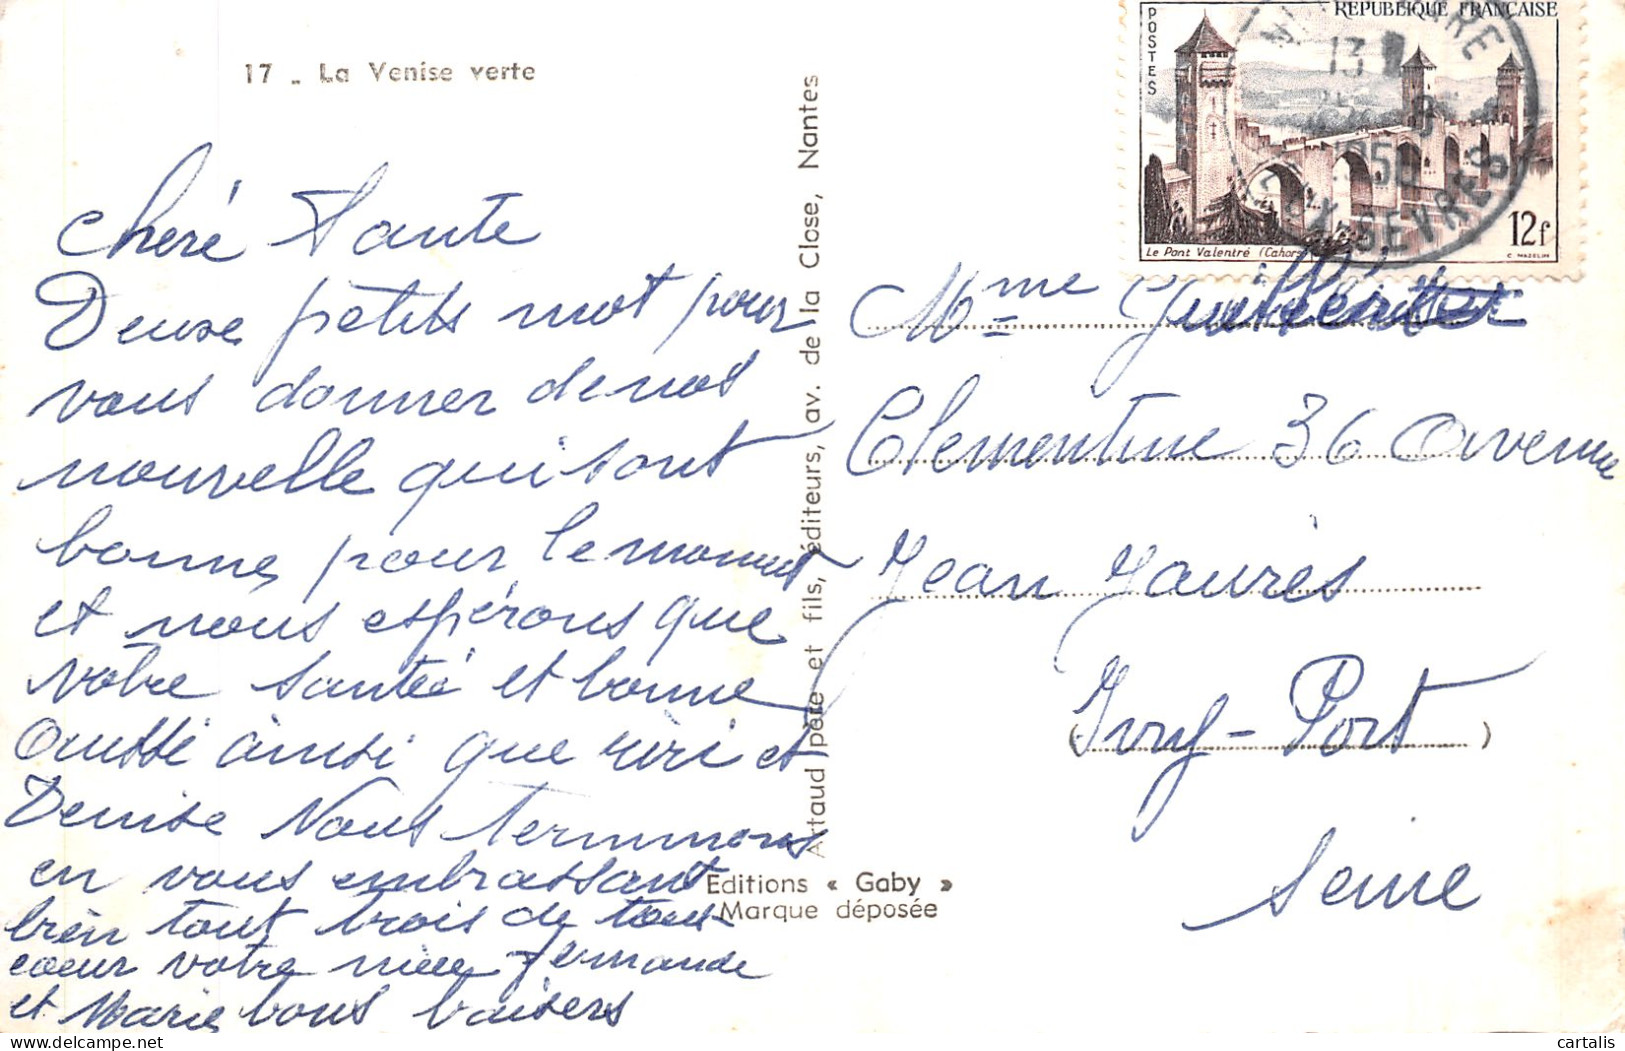 17 - La Venise verte
Cheré Tante
Deuse petits mot pour
vous donner de nos
nouvelle qui sont
bonnes pour le moment
et nous espérons que
votre santéé et bonne
aussi ainsi que riri et
Denise Nous terminons
en vous embrassant
bien tout trois de tous
coeur votre nièce Fernande
et Marie bons baisers
Artaud père et fils, éditeurs, av. de la Close, Nantes
Editions « Gaby »
Marque déposée
REPUBLIQUE FRANCAISE
POSTES
13
DEUX-SEVRES
12f
Le Pont Valentré (Cahors)
C. MAZELIN
Mme
Clementine 36 Avenue
Jean Jaurès
Ivry-Port
Seine
cartalis